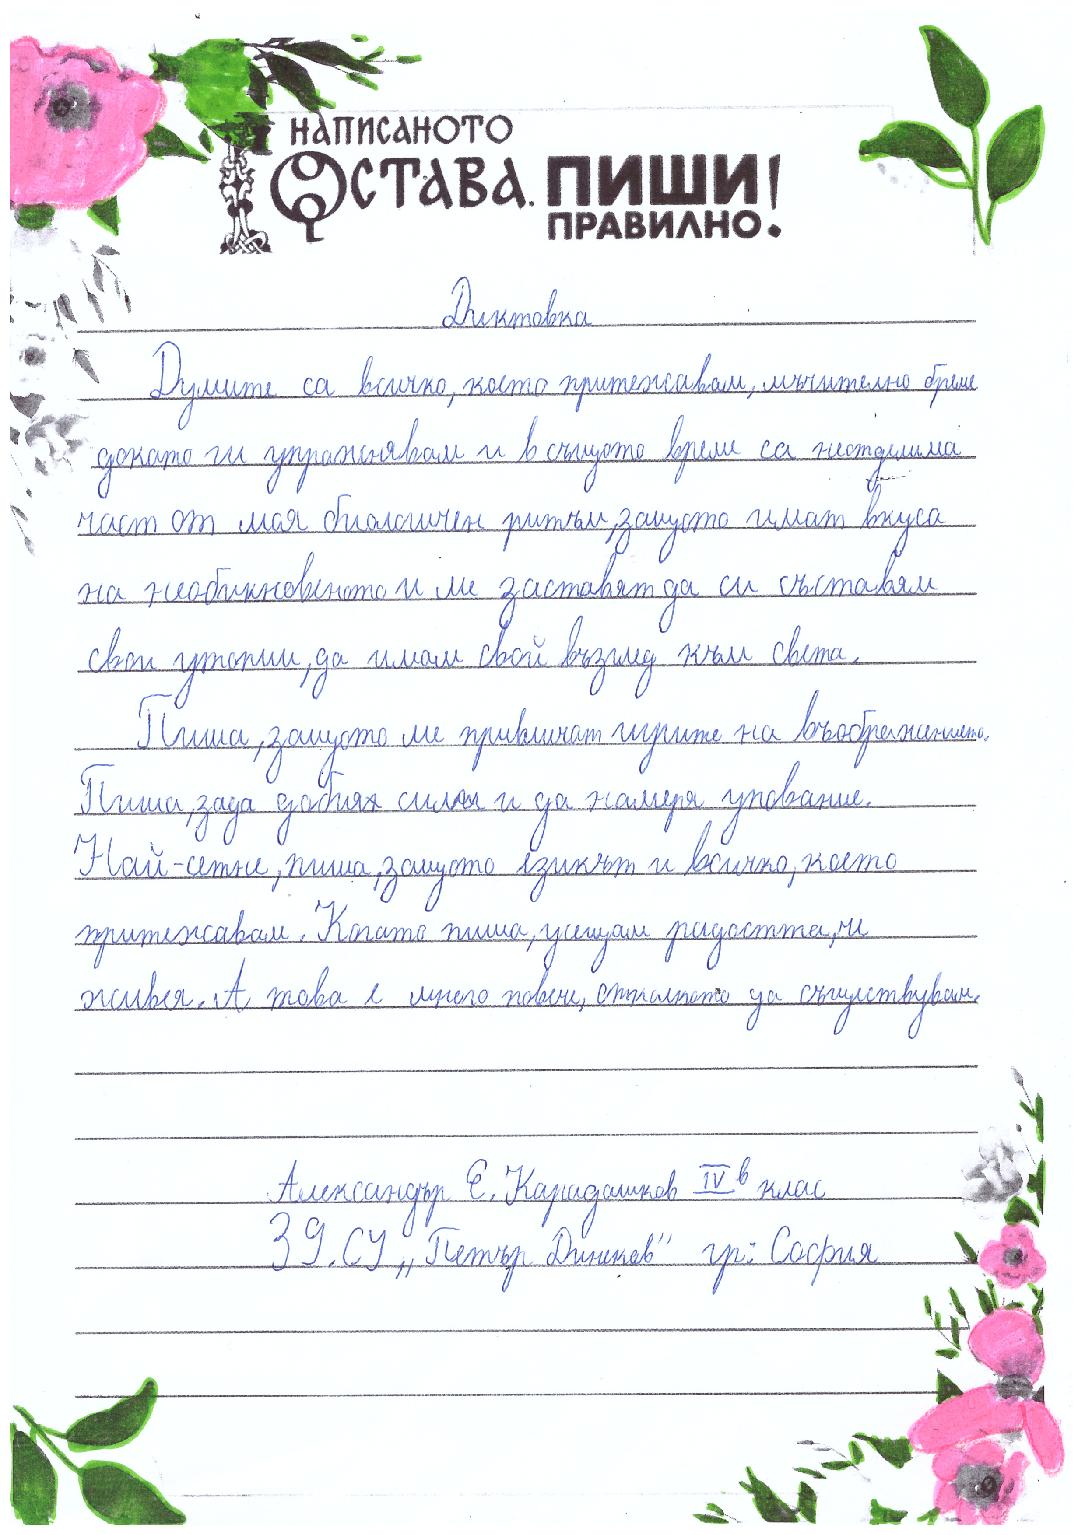 НАПИСАНОТО
ОСТАВА. ПИШИ!
ПРАВИЛНО.
Диктовка
Думите са всичко, което притежавам, мъчително бреме
докато ги упражнявам и в същото време са неотделима
част от моя биологичен ритъм, защото имат вкуса
на необикновеното и ме заставят да си съставям
свои утопии, да имам свой възглед към света.
Пиша, защото ме привличат игрите на въображението.
Пиша, зада добия сили и да намеря упование.
Най-сетне, пиша, защото езикът и всичко, което
притежавам. Когато пиша, усещам радостта, че
живея. А това е много повече, отколкото да съществувам.
Александър Е. Карадашков IV в клас
39. СУ „Петър Динеков" гр: София